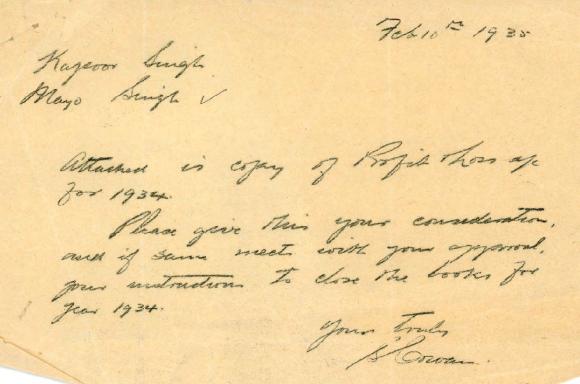 Feb 10th 1935
Kapoor Singh
Mayo Singh ✓
Attached is copy of Profit & Loss a/c
for 1934.
Please give this your consideration,
and if same meets with your approval,
your instructions to close the books for
year 1934.
Yours Truly
S Cowan.